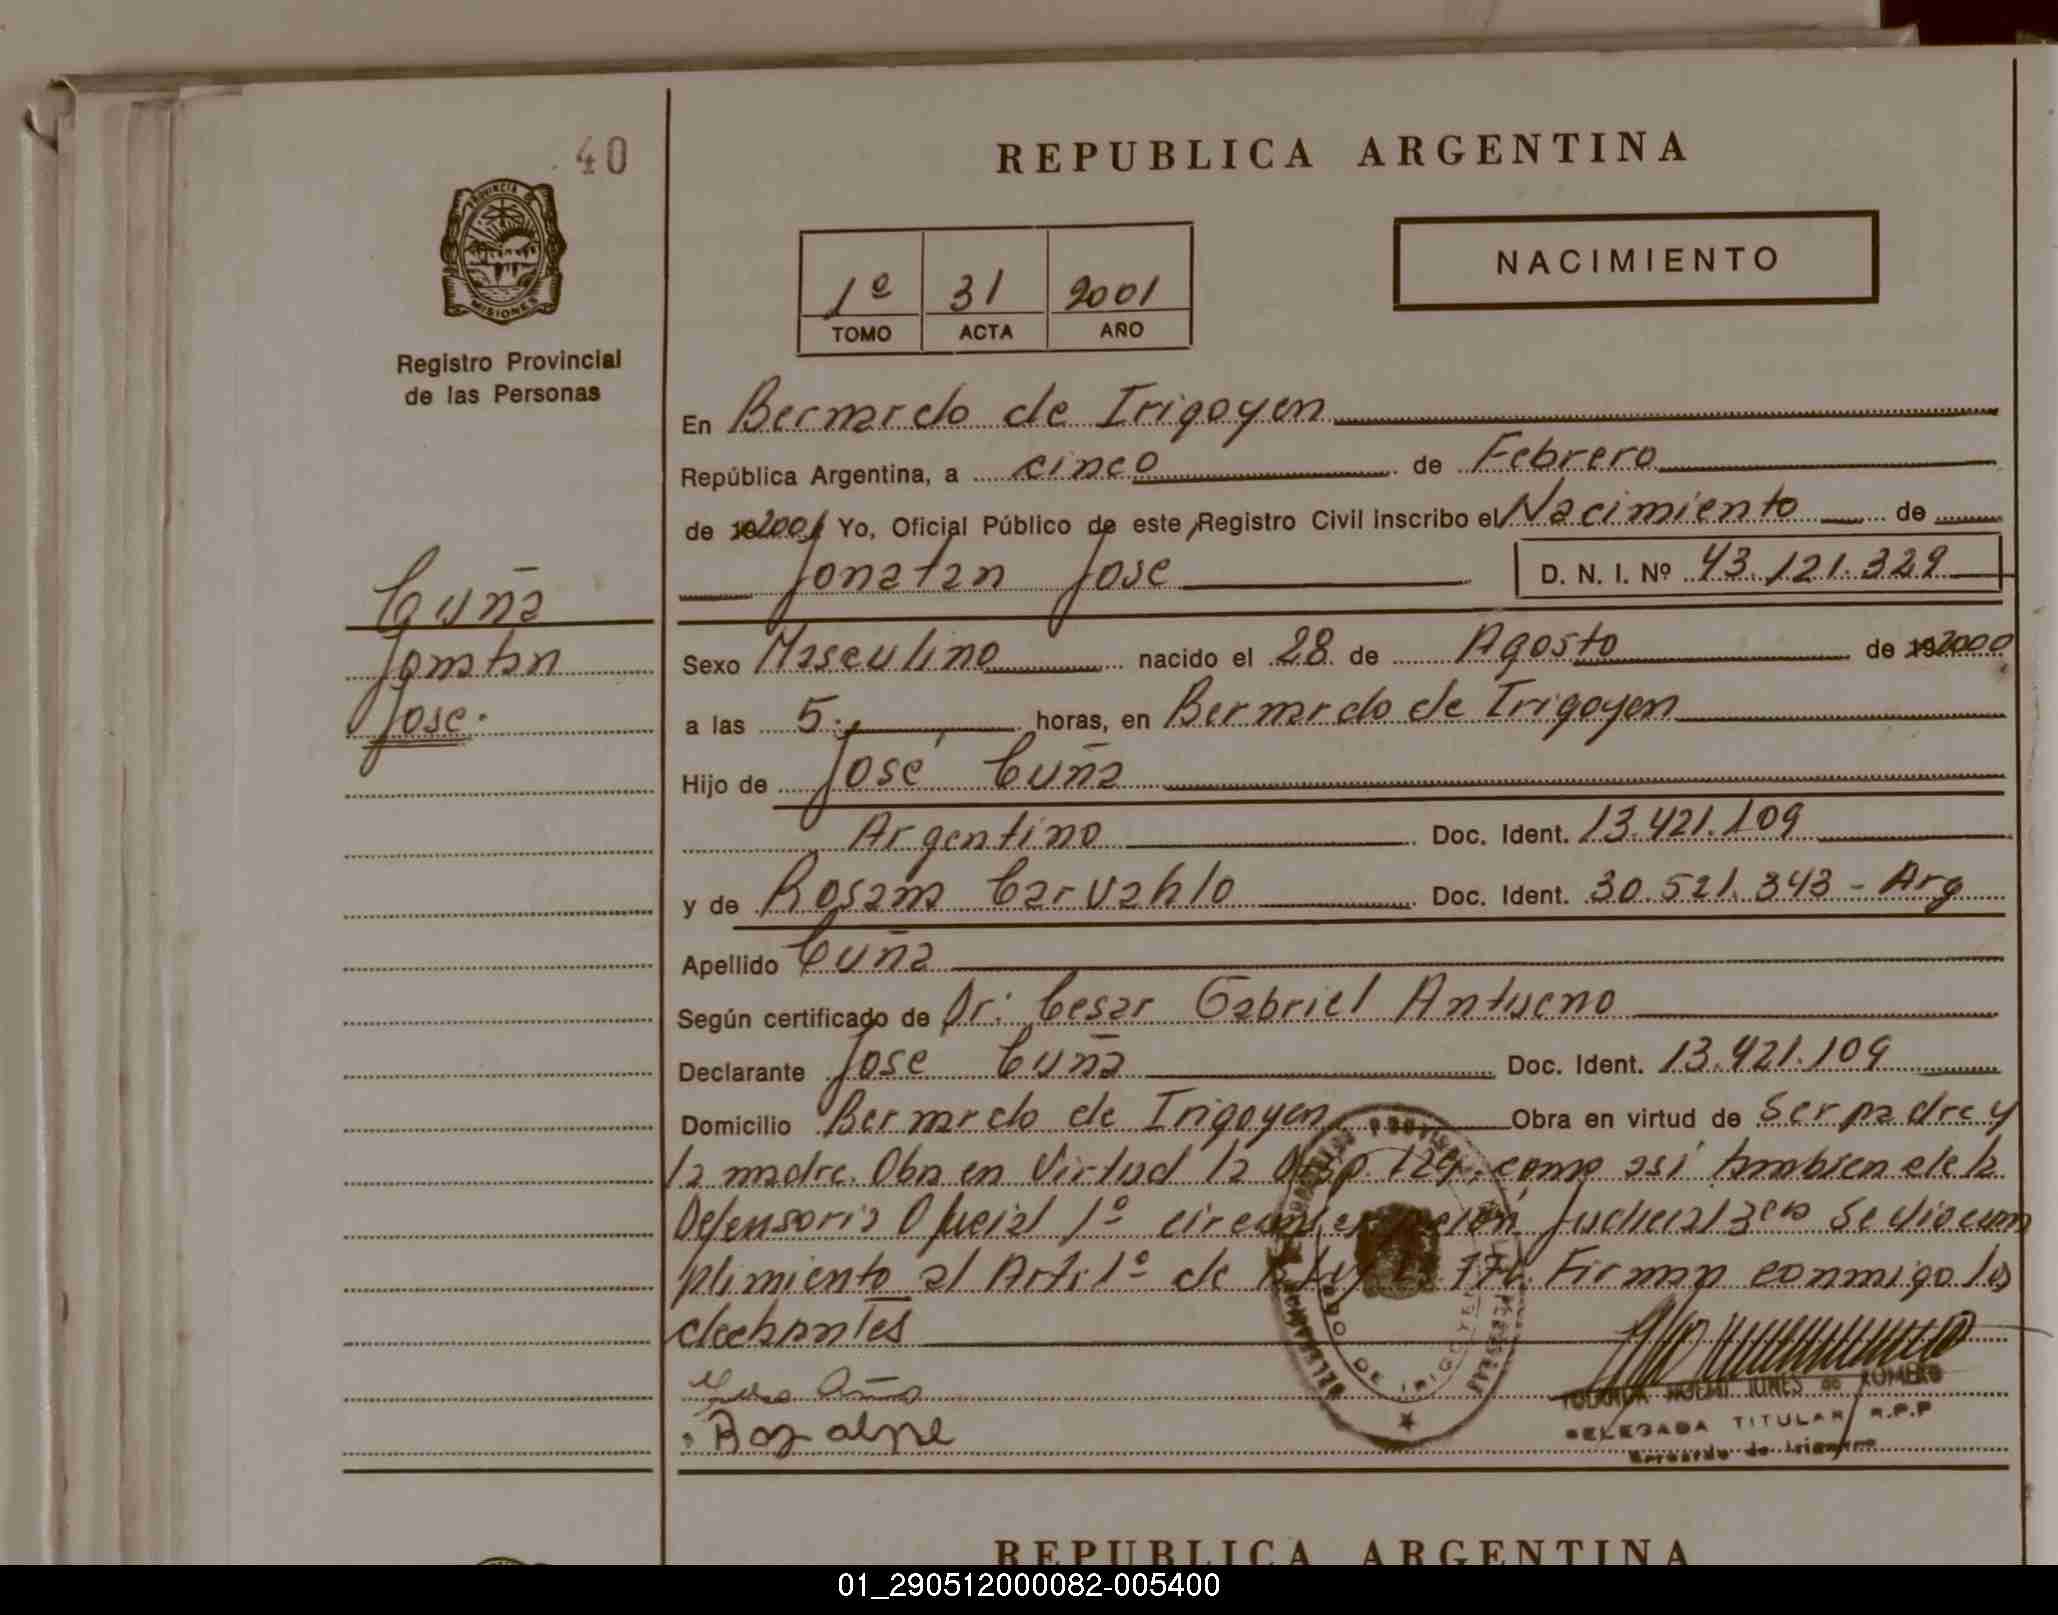 40
PROVINCIA DE
MISIONES
Registro Provincial
de las Personas
REPUBLICA ARGENTINA
1º 31 2001
TOMO ACTA AÑO
NACIMIENTO
En Bernardo de Irigoyen
República Argentina, a cinco de Febrero
de 192001 Yo, Oficial Público de este Registro Civil inscribo el Nacimiento de
Jonatan Jose D. N. I. Nº 43.121.329
Cuña
Jonatan
Jose.
Sexo Masculino nacido el 28 de Agosto de 192000
a las 5. horas, en Bernardo de Irigoyen
Hijo de José Cuña
Argentino Doc. Ident. 13.421.109
y de Rosana Carvahlo Doc. Ident. 30.521.343 - Arg
Apellido Cuña
Según certificado de Dr: Cesar Gabriel Antueno
Declarante Jose Cuña Doc. Ident. 13.421.109
Domicilio Bernardo de Irigoyen Obra en virtud de Ser padre y
la madre. Obra en Virtud la Disp. 129, como así tambien de la
Defensoria Oficial 1º circunscripción Judicial 3era Se dio cum
plimiento al Arti 1º de la Ley Firman conmigo los
declarantes
DE IRIGOYEN
YOLANDA NOEMI de ROMERO
DELEGADA TITULAR R.P.P
Bernardo de Irigoyen
REPUBLICA ARGENTINA
01_290512000082-005400